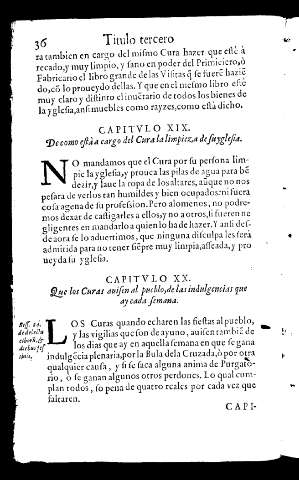 36 Titulo tercero
ra tambien en cargo del mismo Cura hazer que esté á
recado, y muy limpio, y sano en poder del Primiciero, ò
Fabricario el libro grande de las Visitas q̃ se fuerẽ haziẽ
do, cõ lo proueydo dellas. Y que en el mesmo libro esté
muy claro y distinto el inuẽtario de todos los bienes de
la yglesia, ansi muebles como rayzes, como està dicho.
CAPITVLO XIX.
De como està a cargo del Cura la limpieza de su yglesia.
NO mandamos que el Cura por su persona lim-
pie la yglesia, y prouca las pilas de agua para bẽ
dezir, y laue la ropa de los altares, aũque no nos
pesara de verlos tan humildes y bien ocupados: ni fuera
cosa agena de su profession. Pero alomenos, no podre-
mos dexar de castigarles a ellos, y no a otros, si fueren ne
gligentes en mandarlo a quien lo ha de hazer. Y ansi des-
de aora se lo aduertimos, que ninguna disculpa les serà
admitida para no tener siẽpre muy limpia, asseada, y pro
ueyda su yglesia.
CAPITVLO XX.
Que los Curas auisen al pueblo, de las indulgencias que
ay cada semana.
LOS Curas quando echaren las fiestas al pueblo,
y las vigilias que son de ayuno, auisen tambiẽ de
los dias que ay en aquella semana en que se gana
indulgẽcia plenaria, por la Bula dela Cruzada, ò por otra
qualquier causa, y si se saca alguna anima de Purgato-
rio, ò se ganan algunos otros perdones. Lo qual cum-
plan todos, so pena de quatro reales por cada vez que
faltaren.
CAPI-